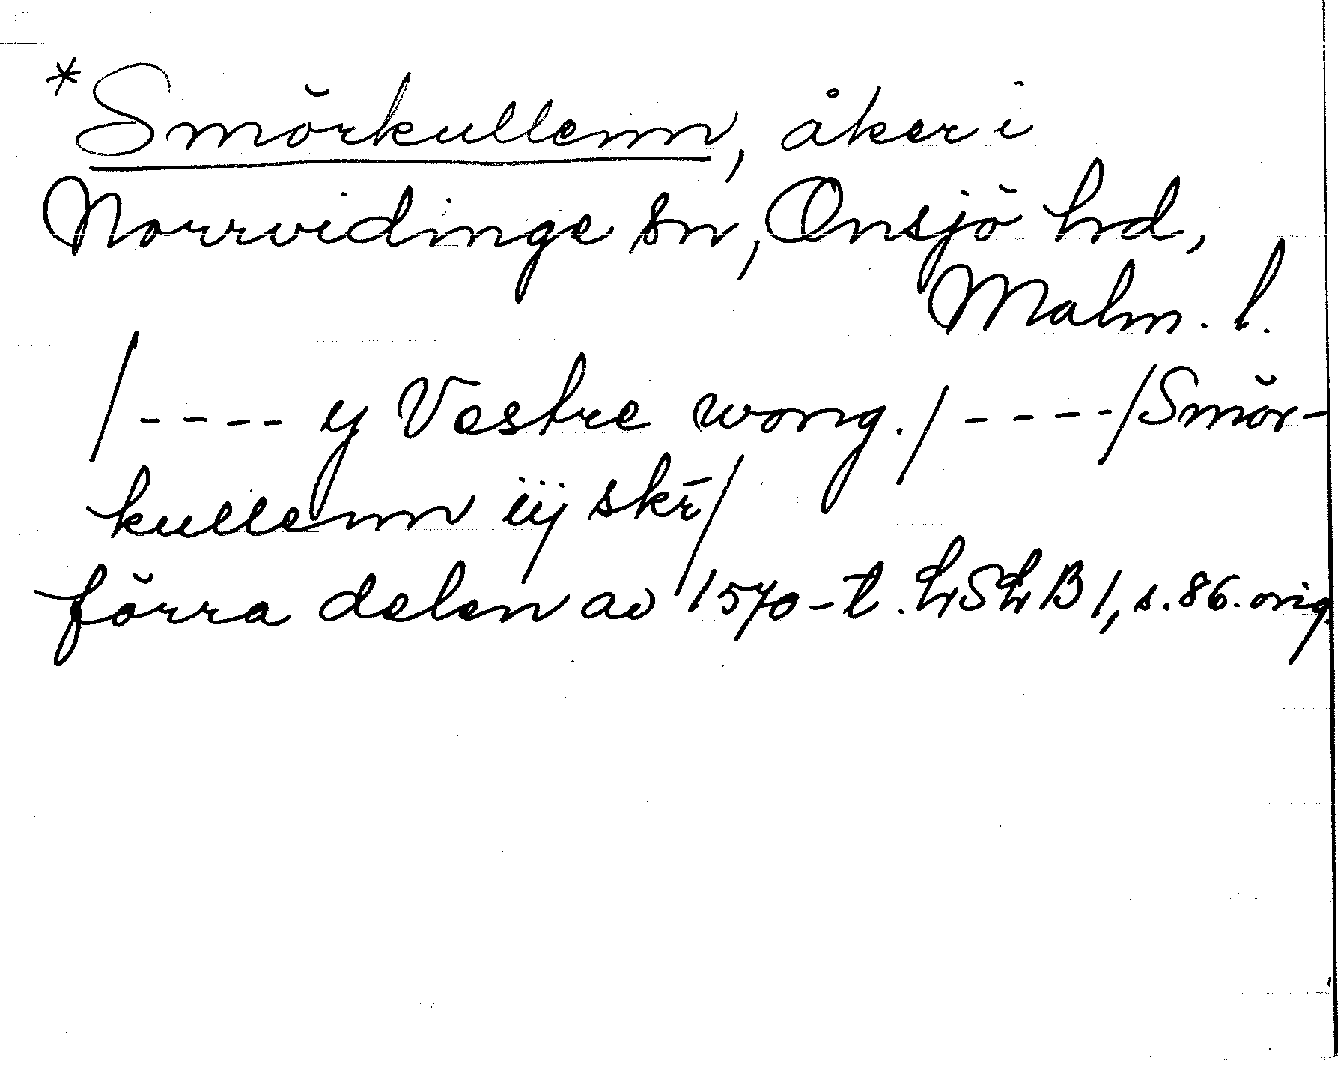 *Smörkullenn, åker i
Norrvidinge sn, Onsjö hd,
Malm. l.
/---- y Vestre wong./ ----/Smör-
kullenn iij skr̄/
förra delen av 1570-t. LSLB 1, s. 86. orig.